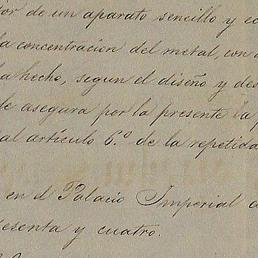 tor de un aparato sencillo y co
la concentracion del metal, con
la hecho, segun el diseño y des
le asegura por la presente la p
al artículo 6.º de la repetida
en el Palacio Imperial
esenta y cuatro.